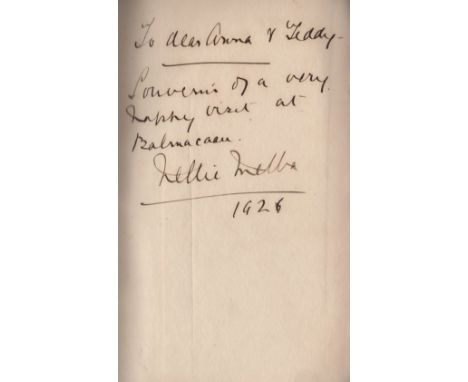 To dear Anna & Teddy -
Souvenir of a very
happy visit at
Balmacaan.
Nellie Melba
1926